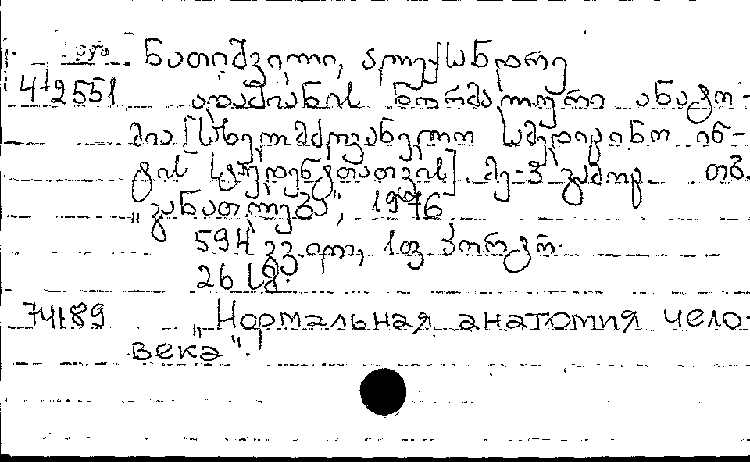 ნათიშვილი, ალექსანდრე
4+2551 ადამიანის ნორმალური ანატო-
მია [სახელმძღვანელო სამედიცინო ინ-
ტის სტუდენტთათვის]. მე-3 გამოც. თბ.
„განათლება", 1976
594 გვ. ილ., 1 ფ. პორტრ.
26 სმ.
74189 „Нормальная анатомия чело-
века".